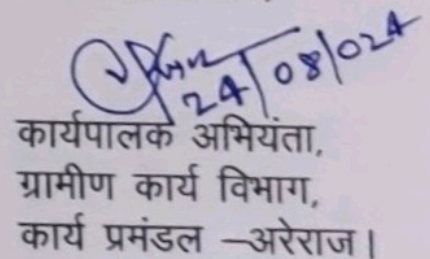 24/08/024
कार्यपालक अभियंता,
ग्रामीण कार्य विभाग,
कार्य प्रमंडल –अरेराज।